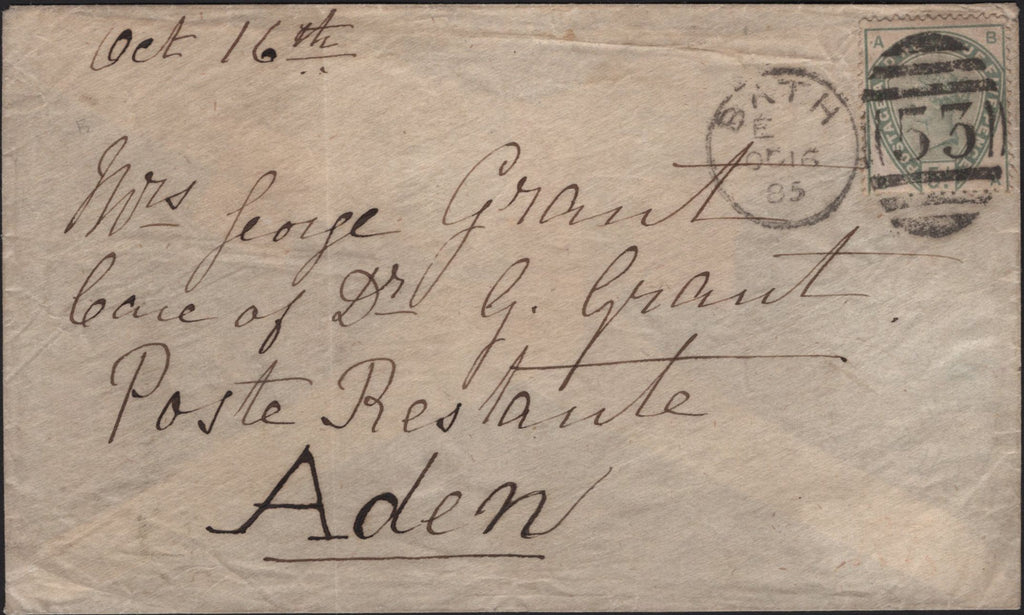 Oct 16th
A B
BATH
E
OC 16
85
53
POSTAGE
Mrs George Grant
Care of Dr G. Grant.
Poste Restante
Aden